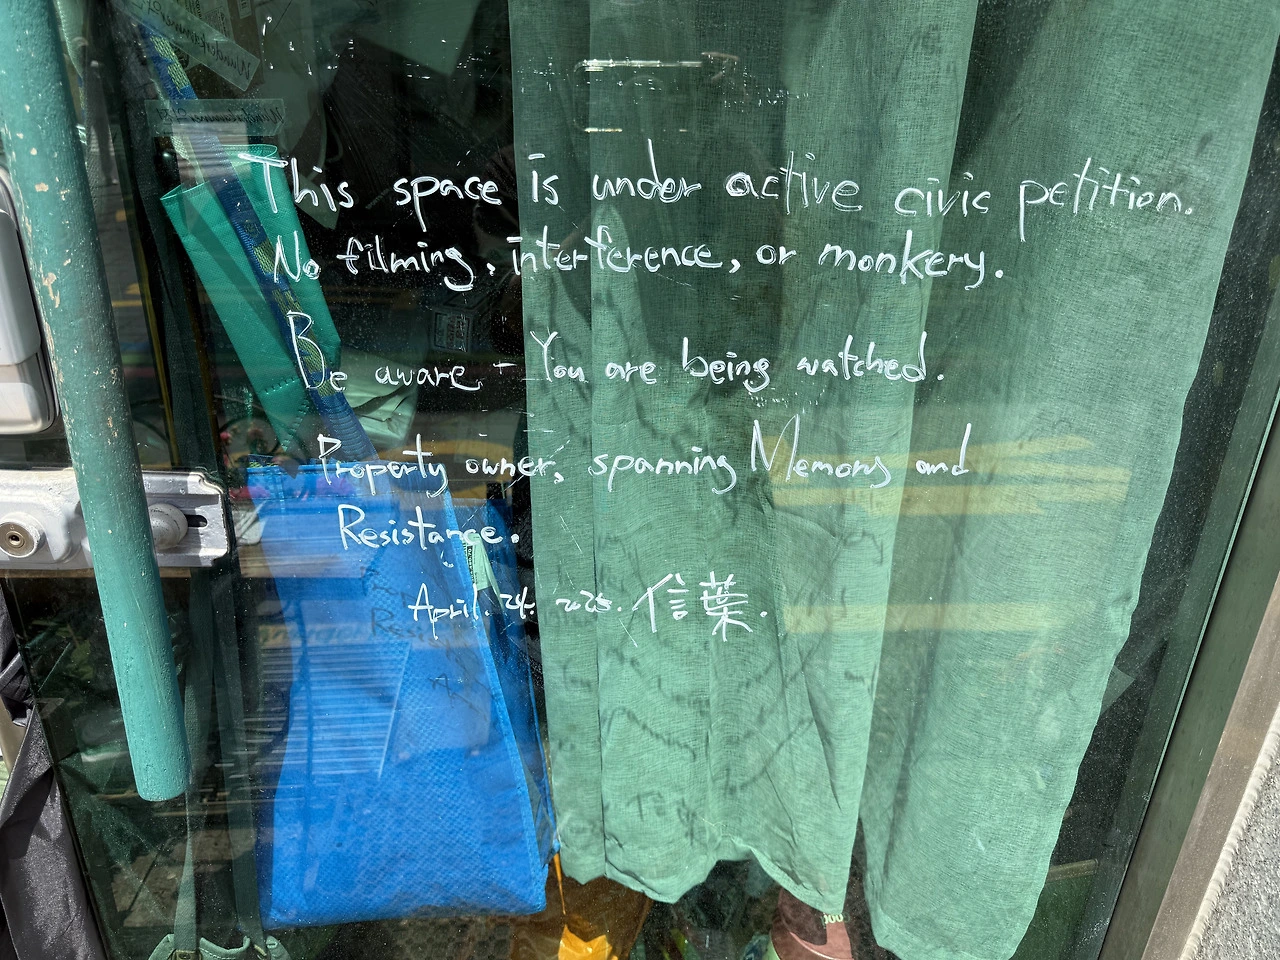 This space is under active civic petition.
No filming, interference, or monkery.
Be aware - You are being watched.
Property owner, spanning Memory and
Resistance.
April. 24. 2025. 信葉.